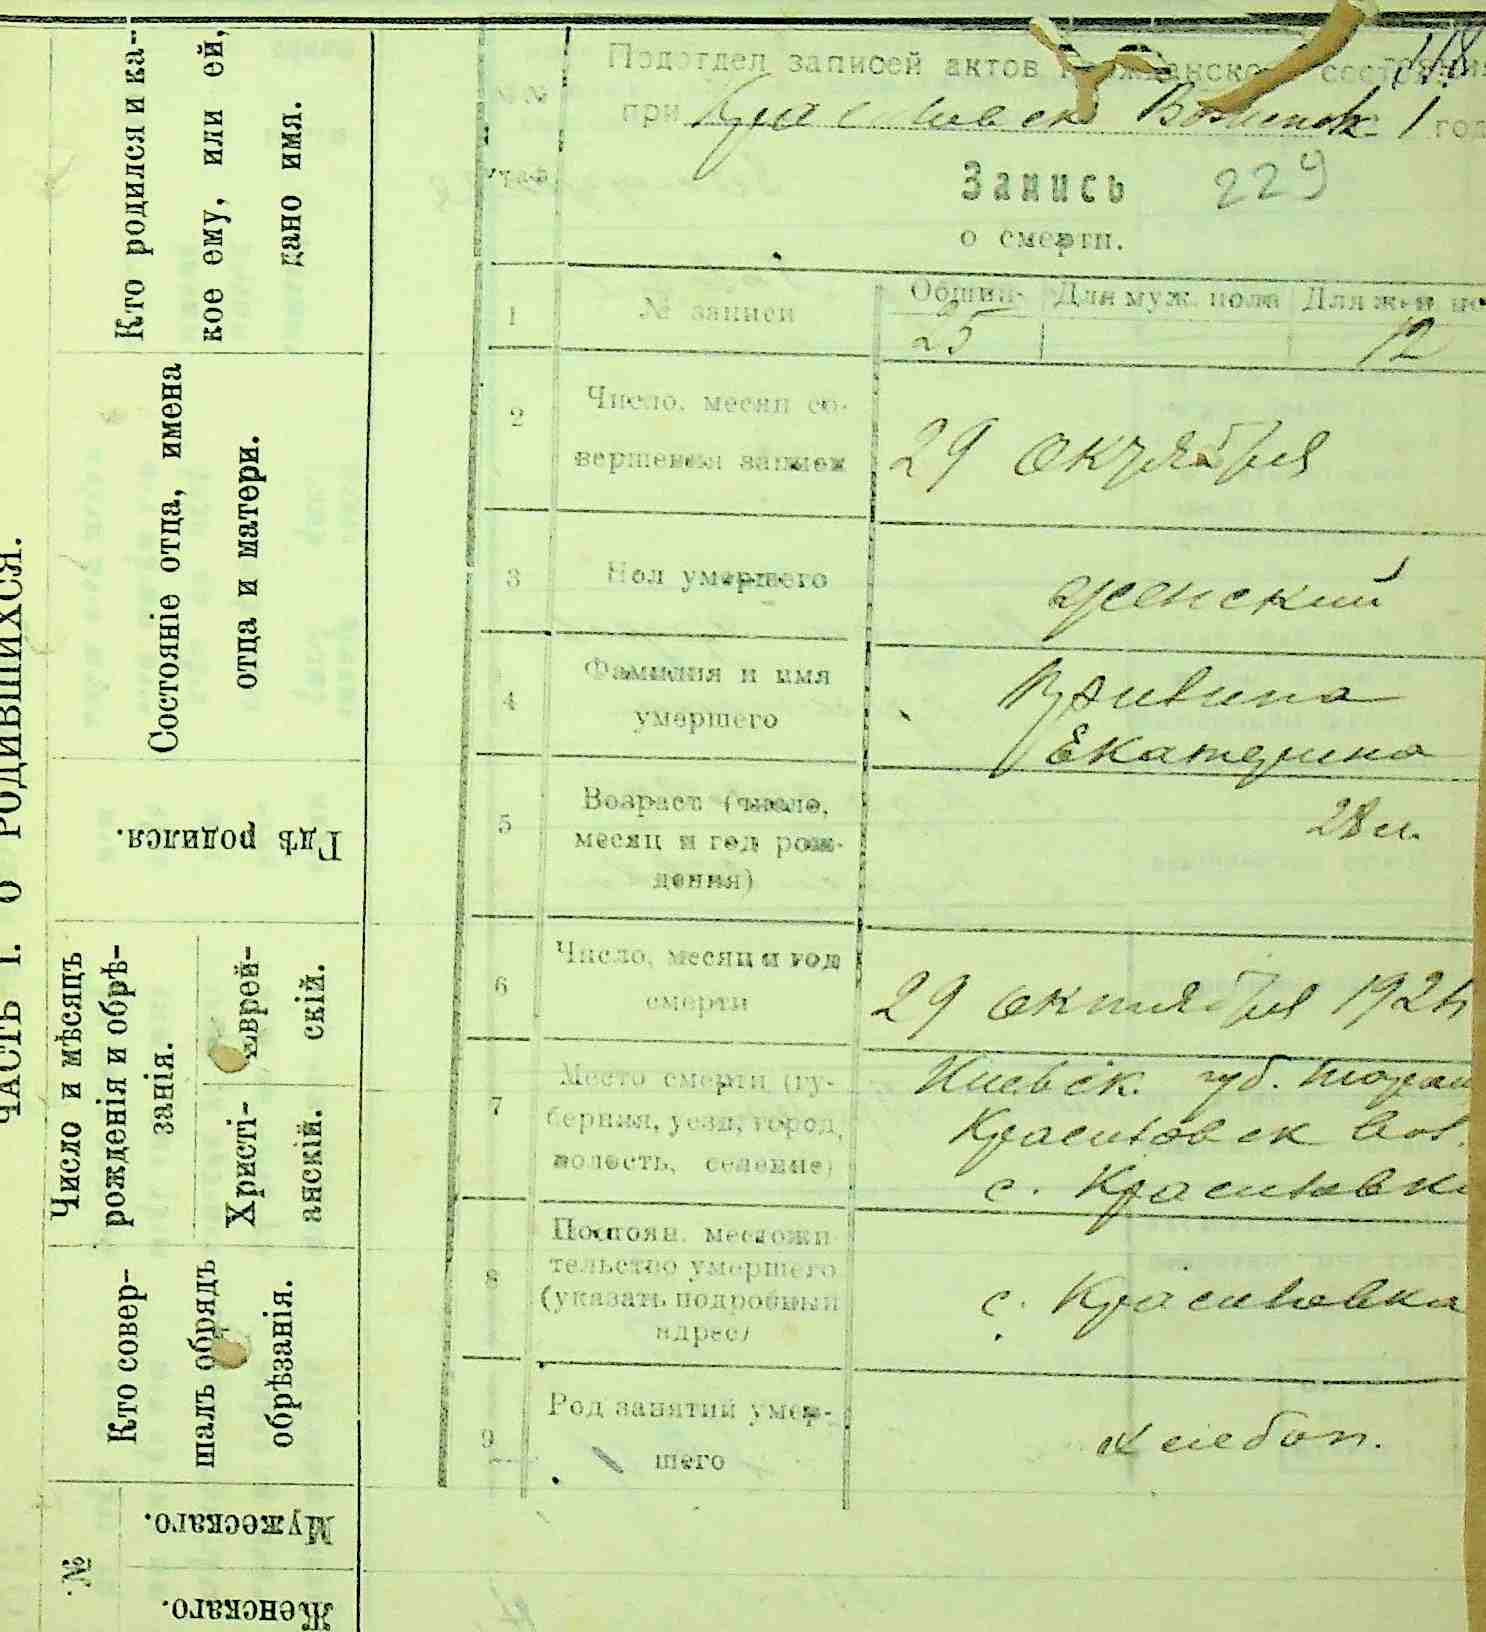 ЧАСТЬ I. О РОДИВШИХСЯ.
Кто родился и ка-
кое ему, или ей,
дано имя.
Состояніе отца, имена
отца и матери.
Гдѣ родился.
Число и мѣсяцъ
рожденія и обрѣ-
занія.
Еврей-
скій.
Христі-
анскій.
Кто совер-
шалъ обрядъ
обрѣзанія.
№
Мужескаго.
Женскаго.
118
Подотдел записей актов гражданского состояния
при
год
№№
граф.
Запись 229
о смерти.
1
№ записи
Общий Для муж. пола Для жен. по
25 12
2
Число, месяц со-
вершения записи
29 октября
3
Пол умершего
женский
4
Фамилия и имя
умершего
Екатерина
5
Возраст (число,
месяц и год рож-
дения)
28 л.
6
Число, месяц и год
смерти
29 октября 192
7
Место смерти (гу-
берния, уезд, город,
волость, селение)
Киевск. губ.
Красиловск вол.
с. Красиловка
8
Постоян. местожи-
тельство умершего
(указать подробный
адрес)
с. Красиловка
9
Род занятий умер-
шего
хлебоп.